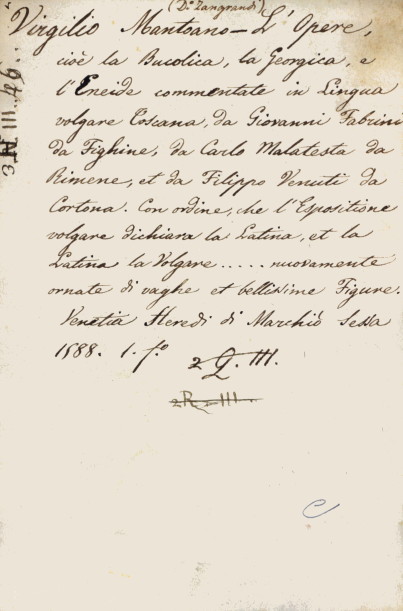 (D.r Zangrandi)
Virgilio Mantoano - L'Opere,
cioè la Bucolica, la Georgica, e
l'Eneide commentate in Lingua
volgare Toscana, da Giovanni Fabrini
da Fighine, da Carlo Malatesta da
Rimene, et da Filippo Venuti da
Cortona. Con ordine, che l'Espositione
volgare dichiara la Latina, et la
Latina la Volgare ..... nuovamente
ornate di vaghe et bellisime Figure.
Venetia Heredi di Marchiò Sessa
1588. 1. f.o
2 Q. III.
2 R - III
C